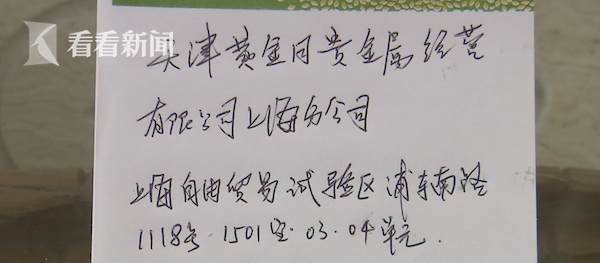 看看新闻
天津黄金同贵金属经营
有限公司上海分公司
上海自由贸易试验区浦东南路
1118号 1501室·03·04单元.